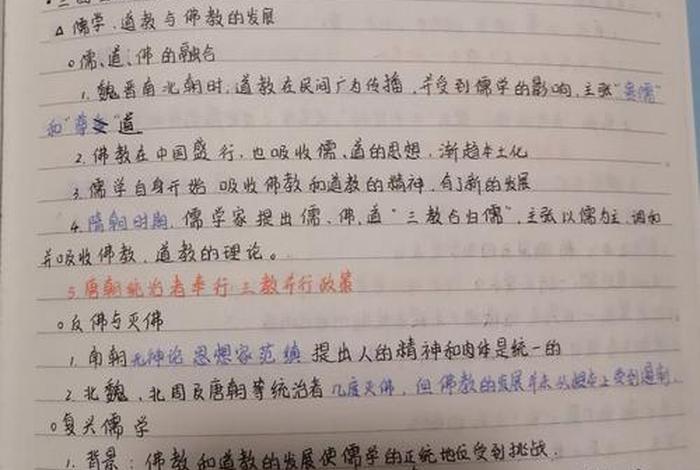 △ 儒学、道教与佛教的发展
○ 儒、道、佛的融合
1. 魏晋南北朝时,道教在民间广为传播,并受到儒学的影响,主张"贵儒"
和"尊道
2. 佛教在中国盛行,也吸收儒、道的思想,渐趋本土化
3. 儒学自身开始 吸收佛教和道教的精神,有了新的发展
4. 隋朝时期,儒学家提出儒、佛、道"三教合归儒",主张以儒为主,调和
并吸收佛教、道教的理论。
5. 唐朝统治者奉行 三教并行政策
○ 反佛与灭佛
1. 南朝无神论 思想家范缜 提出人的精神和肉体是统一的
2. 北魏、北周及唐朝等统治者 几度灭佛,但佛教的发展并未从根本上受到遏制.
○ 复兴儒学
1. 背景:佛教和道教的发展使儒学的正统地位受到挑战.